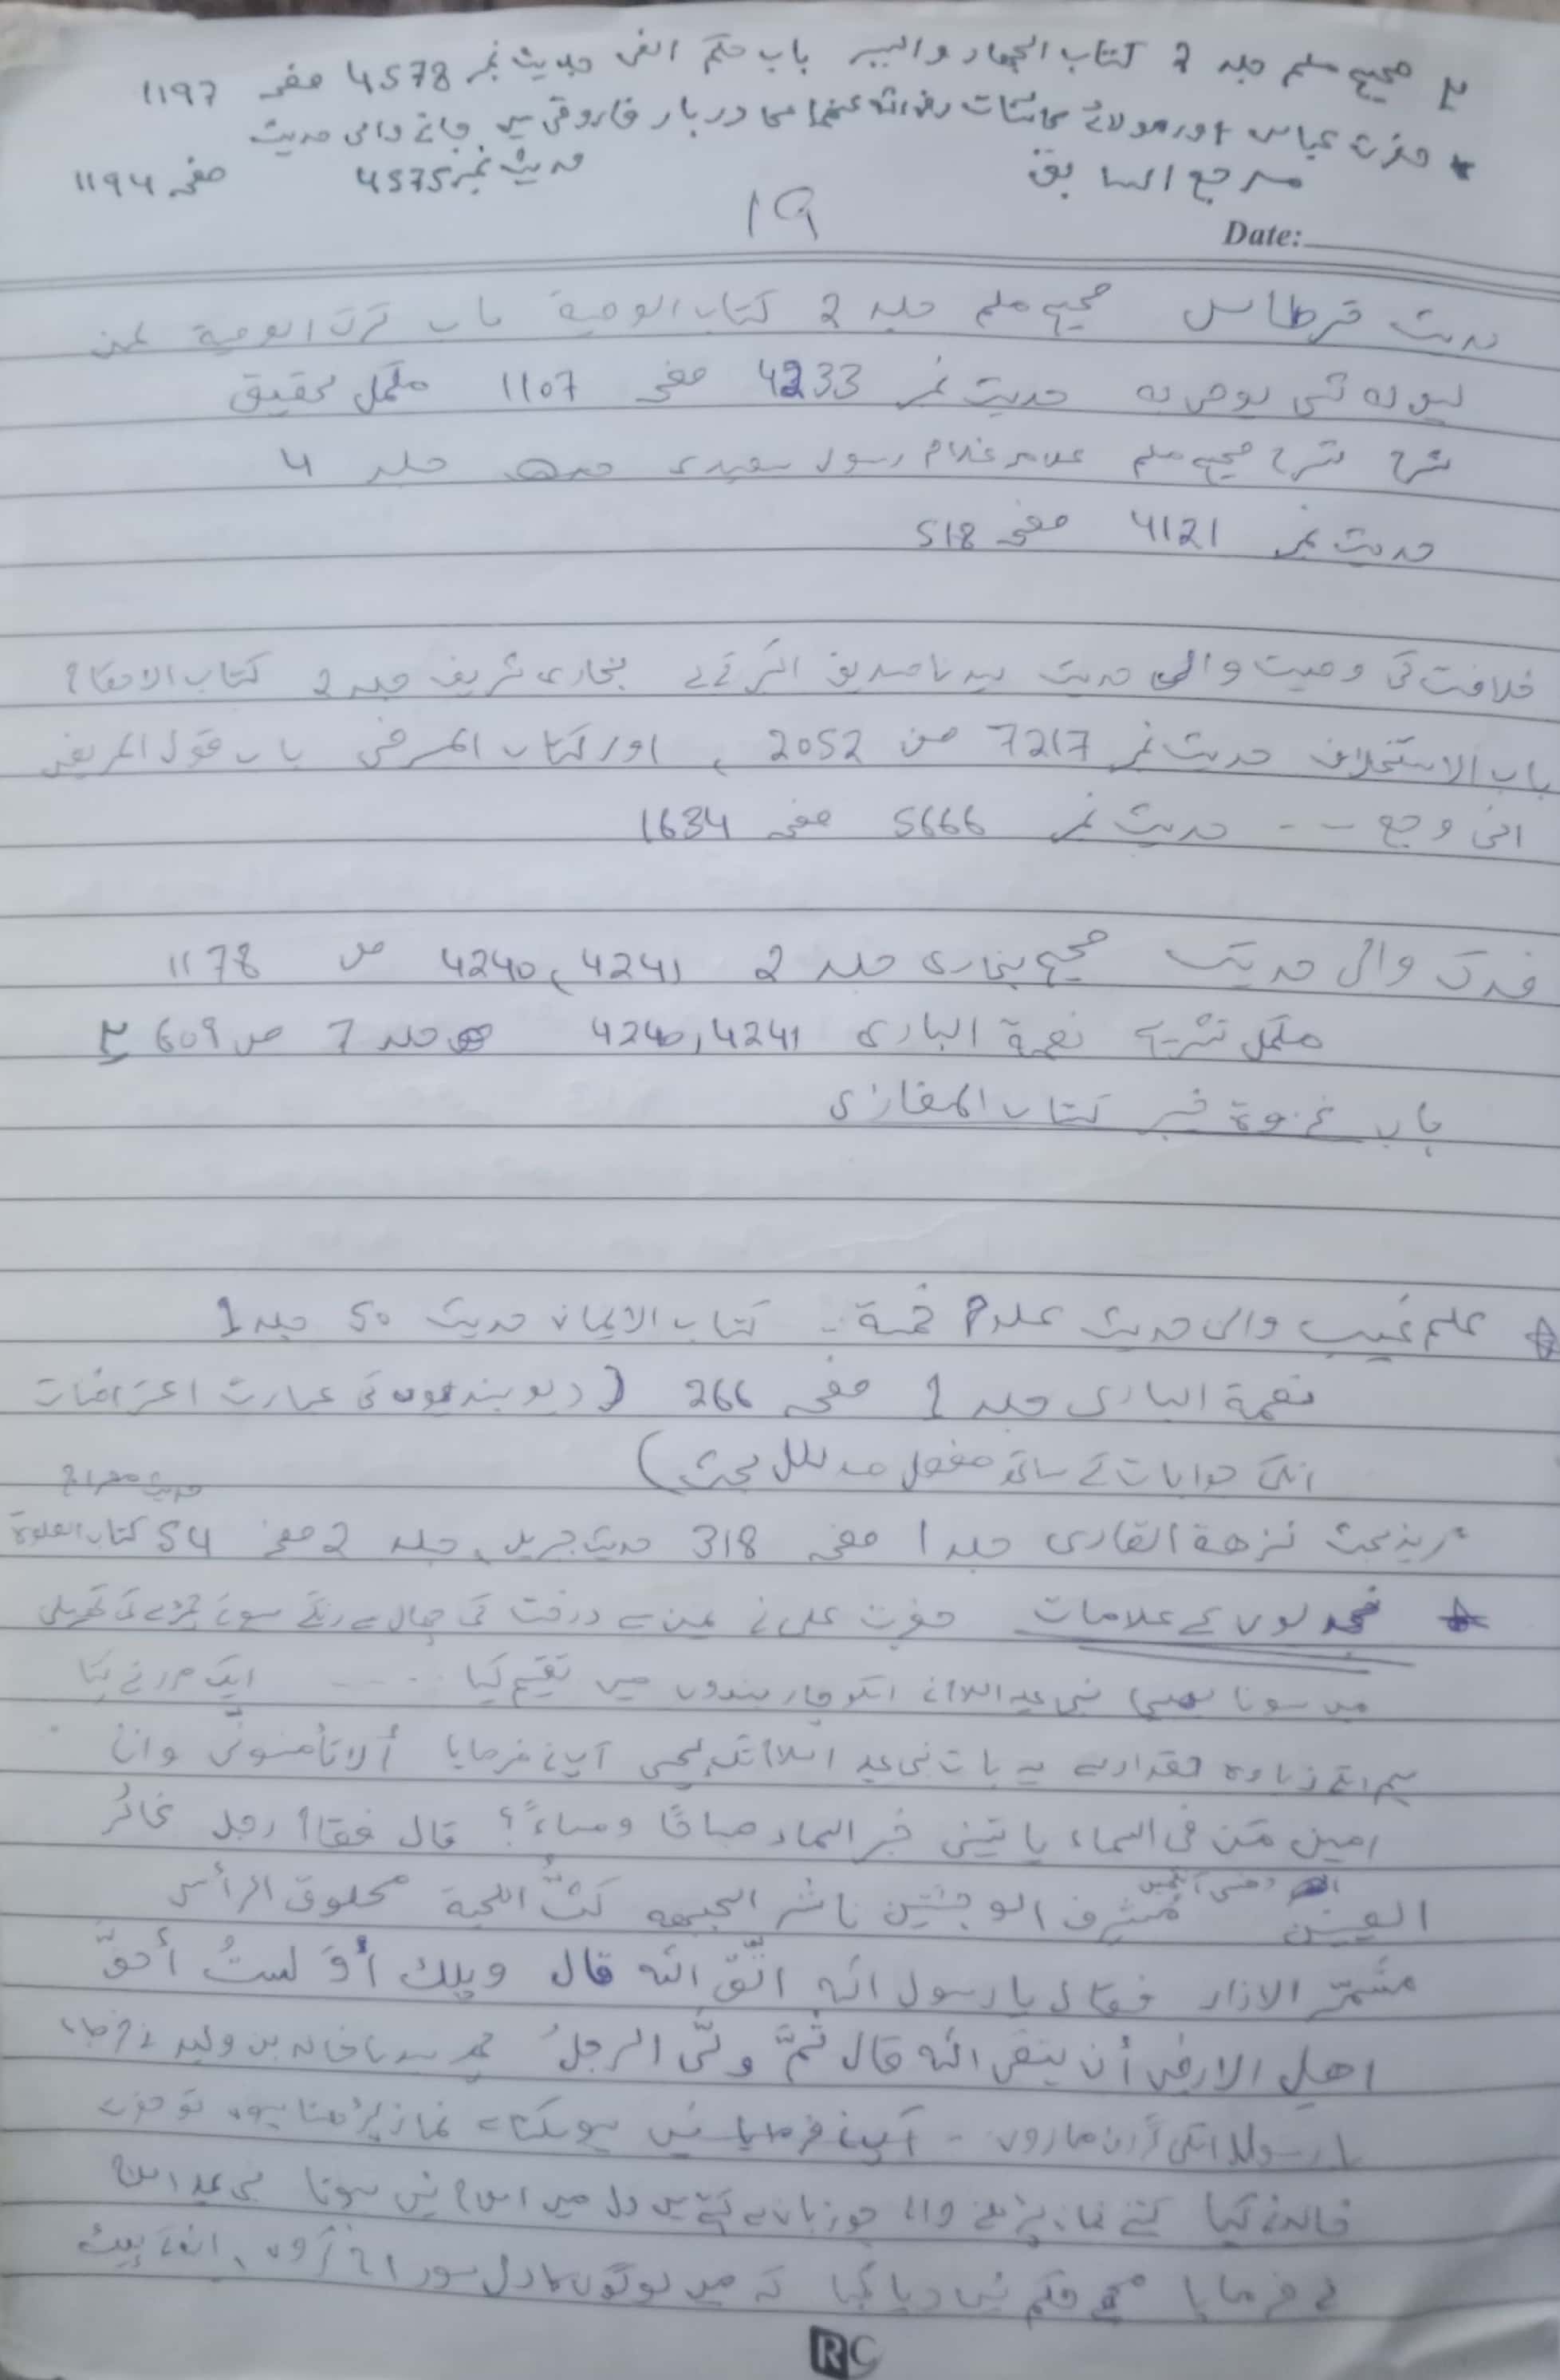 صحیح مسلم جلد 2 کتاب الجھاد والسیر باب حکم الفئ حدیث نمبر 4578 صفحہ 1197
حضرت عباس اور مولائے کائنات رضی اللہ عنھما کا دربار فاروقی میں جانے والی حدیث
مرجع السابق حدیث نمبر 4575 صفحہ 1194
19
Date:
حدیث قرطاس صحیح مسلم جلد 2 کتاب الوصیة باب ترک الوصیة لمن
لیس لہ شئ یوصی بہ حدیث نمبر 4233 صفحہ 1107 مکمل تحقیق
شرح شرح صحیح مسلم علامہ غلام رسول سعیدی جلد 4
حدیث نمبر 4121 صفحہ 518
خلافت کی وصیت والی حدیث سیدنا صدیق اکبر کے لئے بخاری شریف جلد 2 کتاب الاحکام
باب الاستخلاف حدیث نمبر 7217 ص 2052 ، اور کتاب المرضی باب قول المریض
انی وجع -- حدیث نمبر 5666 صفحہ 1634
فدک والی حدیث صحیح بخاری جلد 2 4240، 4241 ص 1178
مکمل تشریح نعمة الباری 4240، 4241 جلد 7 ص 609
باب غزوة خیبر کتاب المغازی
علم غیب والی حدیث علوم خمسة - کتاب الایمان حدیث 50 جلد 1
نعمة الباری جلد 1 صفحہ 266 (دیوبندیوں کی عبارت اعتراضات
انکے جوابات کے ساتھ مفصل مدلل بحث)
حدیث معراج
مزید بحث نزھة القاری جلد 1 صفحہ 318 حدیث جبریل، جلد 2 صفحہ 54 کتاب الصلوة
نجدیوں کے علامات حضرت علی نے یمن سے درخت کی چھال سے رنگے ہوئے چمڑے کی تھیلی
میں سونا بھیجا نبی علیہ السلام نے اسکو چار بندوں میں تقسیم کیا ---- ایک مرد نے کہا
ہم انکے زیادہ حقدار تھے یہ بات نبی علیہ السلام تک پہنچی آپ نے فرمایا ألا تأمنونی وانا
امین مَن فی السماء یاتینی خبر السماء صباحًا ومساءً؟ قال فقام رجل غائرُ
دھنسی آنکھیں
العینین مُشرِف الوجنتین ناشز الجبھہ کثُّ اللحیة محلوق الرأس
مشمّر الازار فقال یا رسول اللہ اتَّقِ اللہ قال ویلك أوَ لستُ أحقَّ
اھل الارض أن یتقی اللہ قال ثمَّ ولّی الرجلُ پھر سیدنا خالد بن ولید نے فرمایا
یا رسول اللہ انکی گردن ماروں - آپ نے فرمایا نہیں ہوسکتا ہے نماز پڑھتا ہو، تو حضرت
خالد نے کہا کتنے نماز پڑھنے والے جو زبان سے کہتے ہیں دل میں نہیں ہوتا نبی علیہ السلام
نے فرمایا مجھے حکم نہیں دیا گیا کہ میں لوگوں کا دل سوراخ کروں، انکے پیٹ
RC